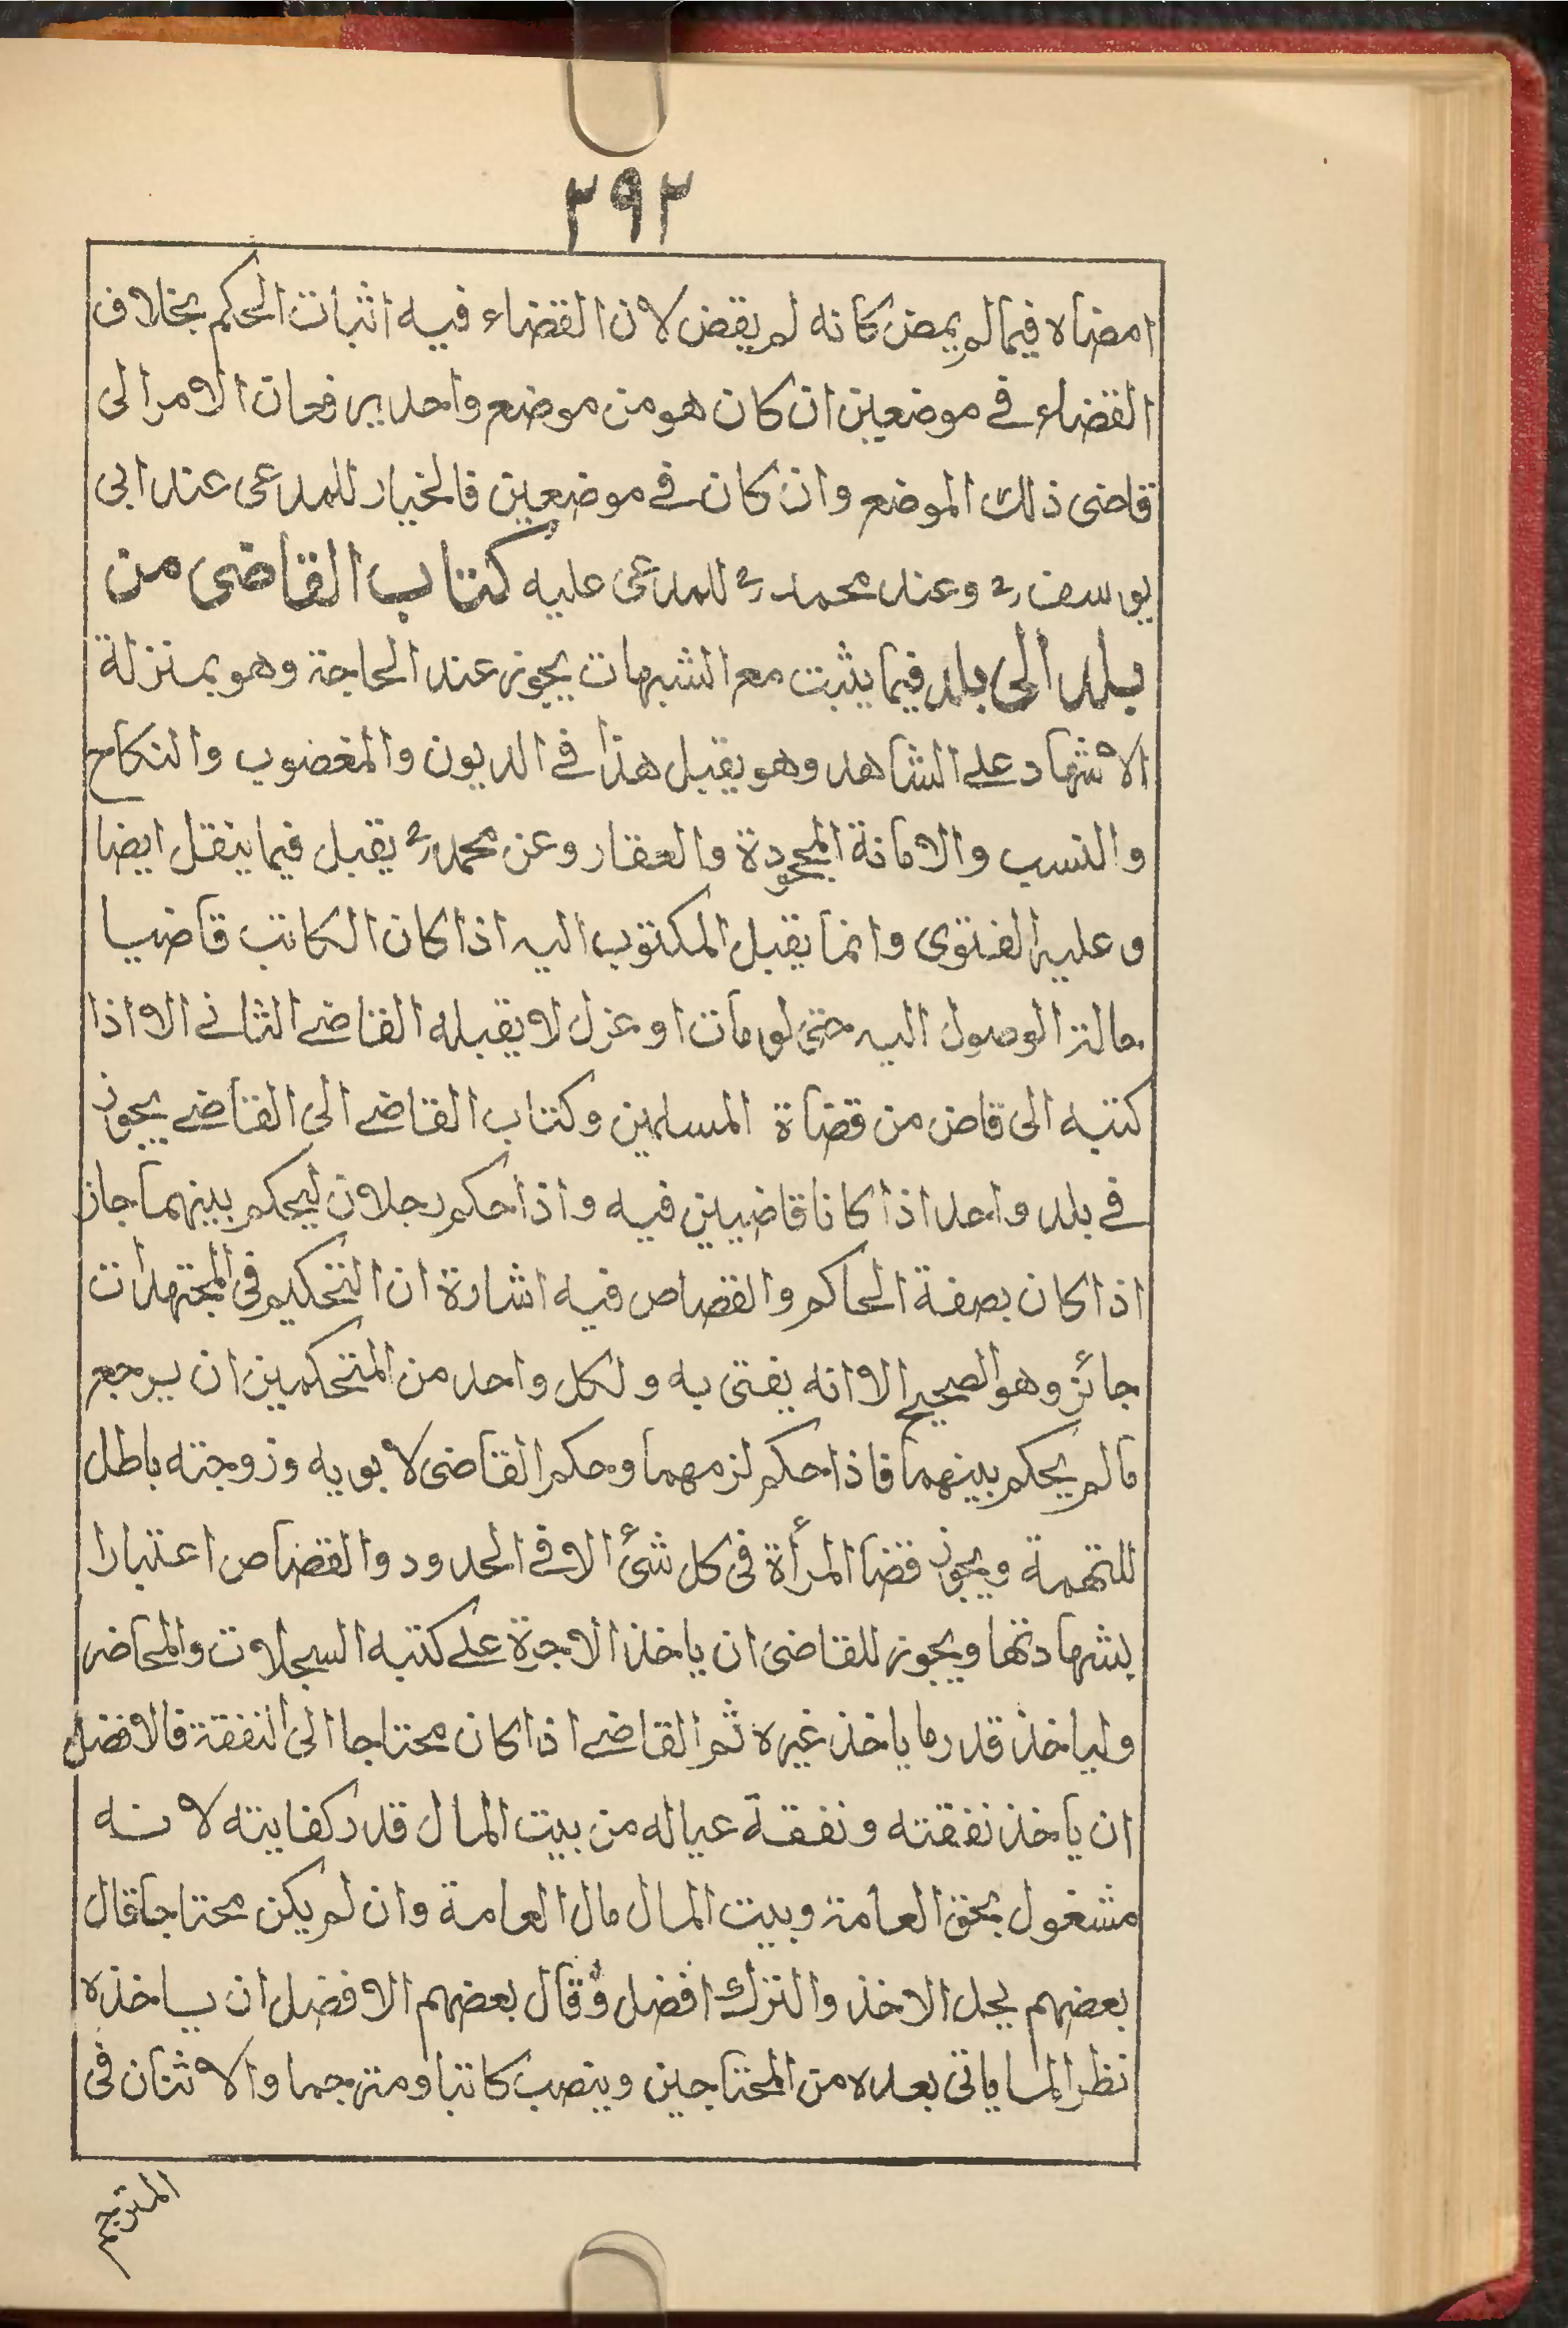 ٢٩٢
امضاه فيما لم يمض كانه لم يقض لان القضاء فيه اثبات الحكم بخلاف
القضاء في موضعين ان كان هو من موضع واحد يرفعان الامر الى
قاضى ذلك الموضع وان كان في موضعين فالخيار للمدعى عند ابى
يوسف رح وعند محمد رح للمدعى عليه كتاب القاضى من
بلد الى بلد فيما يثبت مع الشبهات يجوز عند الحاجة وهو بمنزلة
الاشهاد على الشاهد وهو يقبل هذا في الديون والمغضوب والنكاح
والنسب والامانة المجحودة والعقار وعن محمد رح يقبل فيما ينقل ايضا
وعليه الفتوى وانما يقبل المكتوب اليه اذا كان الكاتب قاضيا
الوصول اليه حتى لو مات او عزل لا يقبله القاضے الثانے الا اذا
كتبه الى قاض من قضاة المسلمين وكتاب القاضے الى القاضے يجوز
في بلد واحد اذا كانا قاضيين فيه واذا حكم رجلان ليحكم بينهما جاز
اذا كان بصفة الحاكم والقصاص فيه اشارة ان التحكيم فى المجتهدات
جائز وهو الصحيح الا انه يفتى به ولكل واحد من المتحكمين ان يرجع
مالم يحكم بينهما فاذا حكم لزمهما وحكم القاضى لابويه وزوجته باطل
للتهمة ويجوز قضا المرأة فى كل شئ الا في الحدود والقصاص اعتبارا
بشهادتها ويجوز للقاضى ان ياخذ الاجرة على كتبه السجلات والمحاضر
ولياخذ قدر ما ياخذ غيره ثم القاضے اذا كان محتاجا الى النفقة فالافضل
ان ياخذ نفقته ونفقة عياله من بيت المال قدر كفايته لانه
مشغول بحق العامة وبيت المال مال العامة وان لم يكن محتاجا قال
بعضهم يحل الاخذ والترك افضل وقال بعضهم الافضل ان ياخذه
نظرا لما ياتى بعده من المحتاجين وينصب كاتبا ومترجما والاثنان فى
المترجم